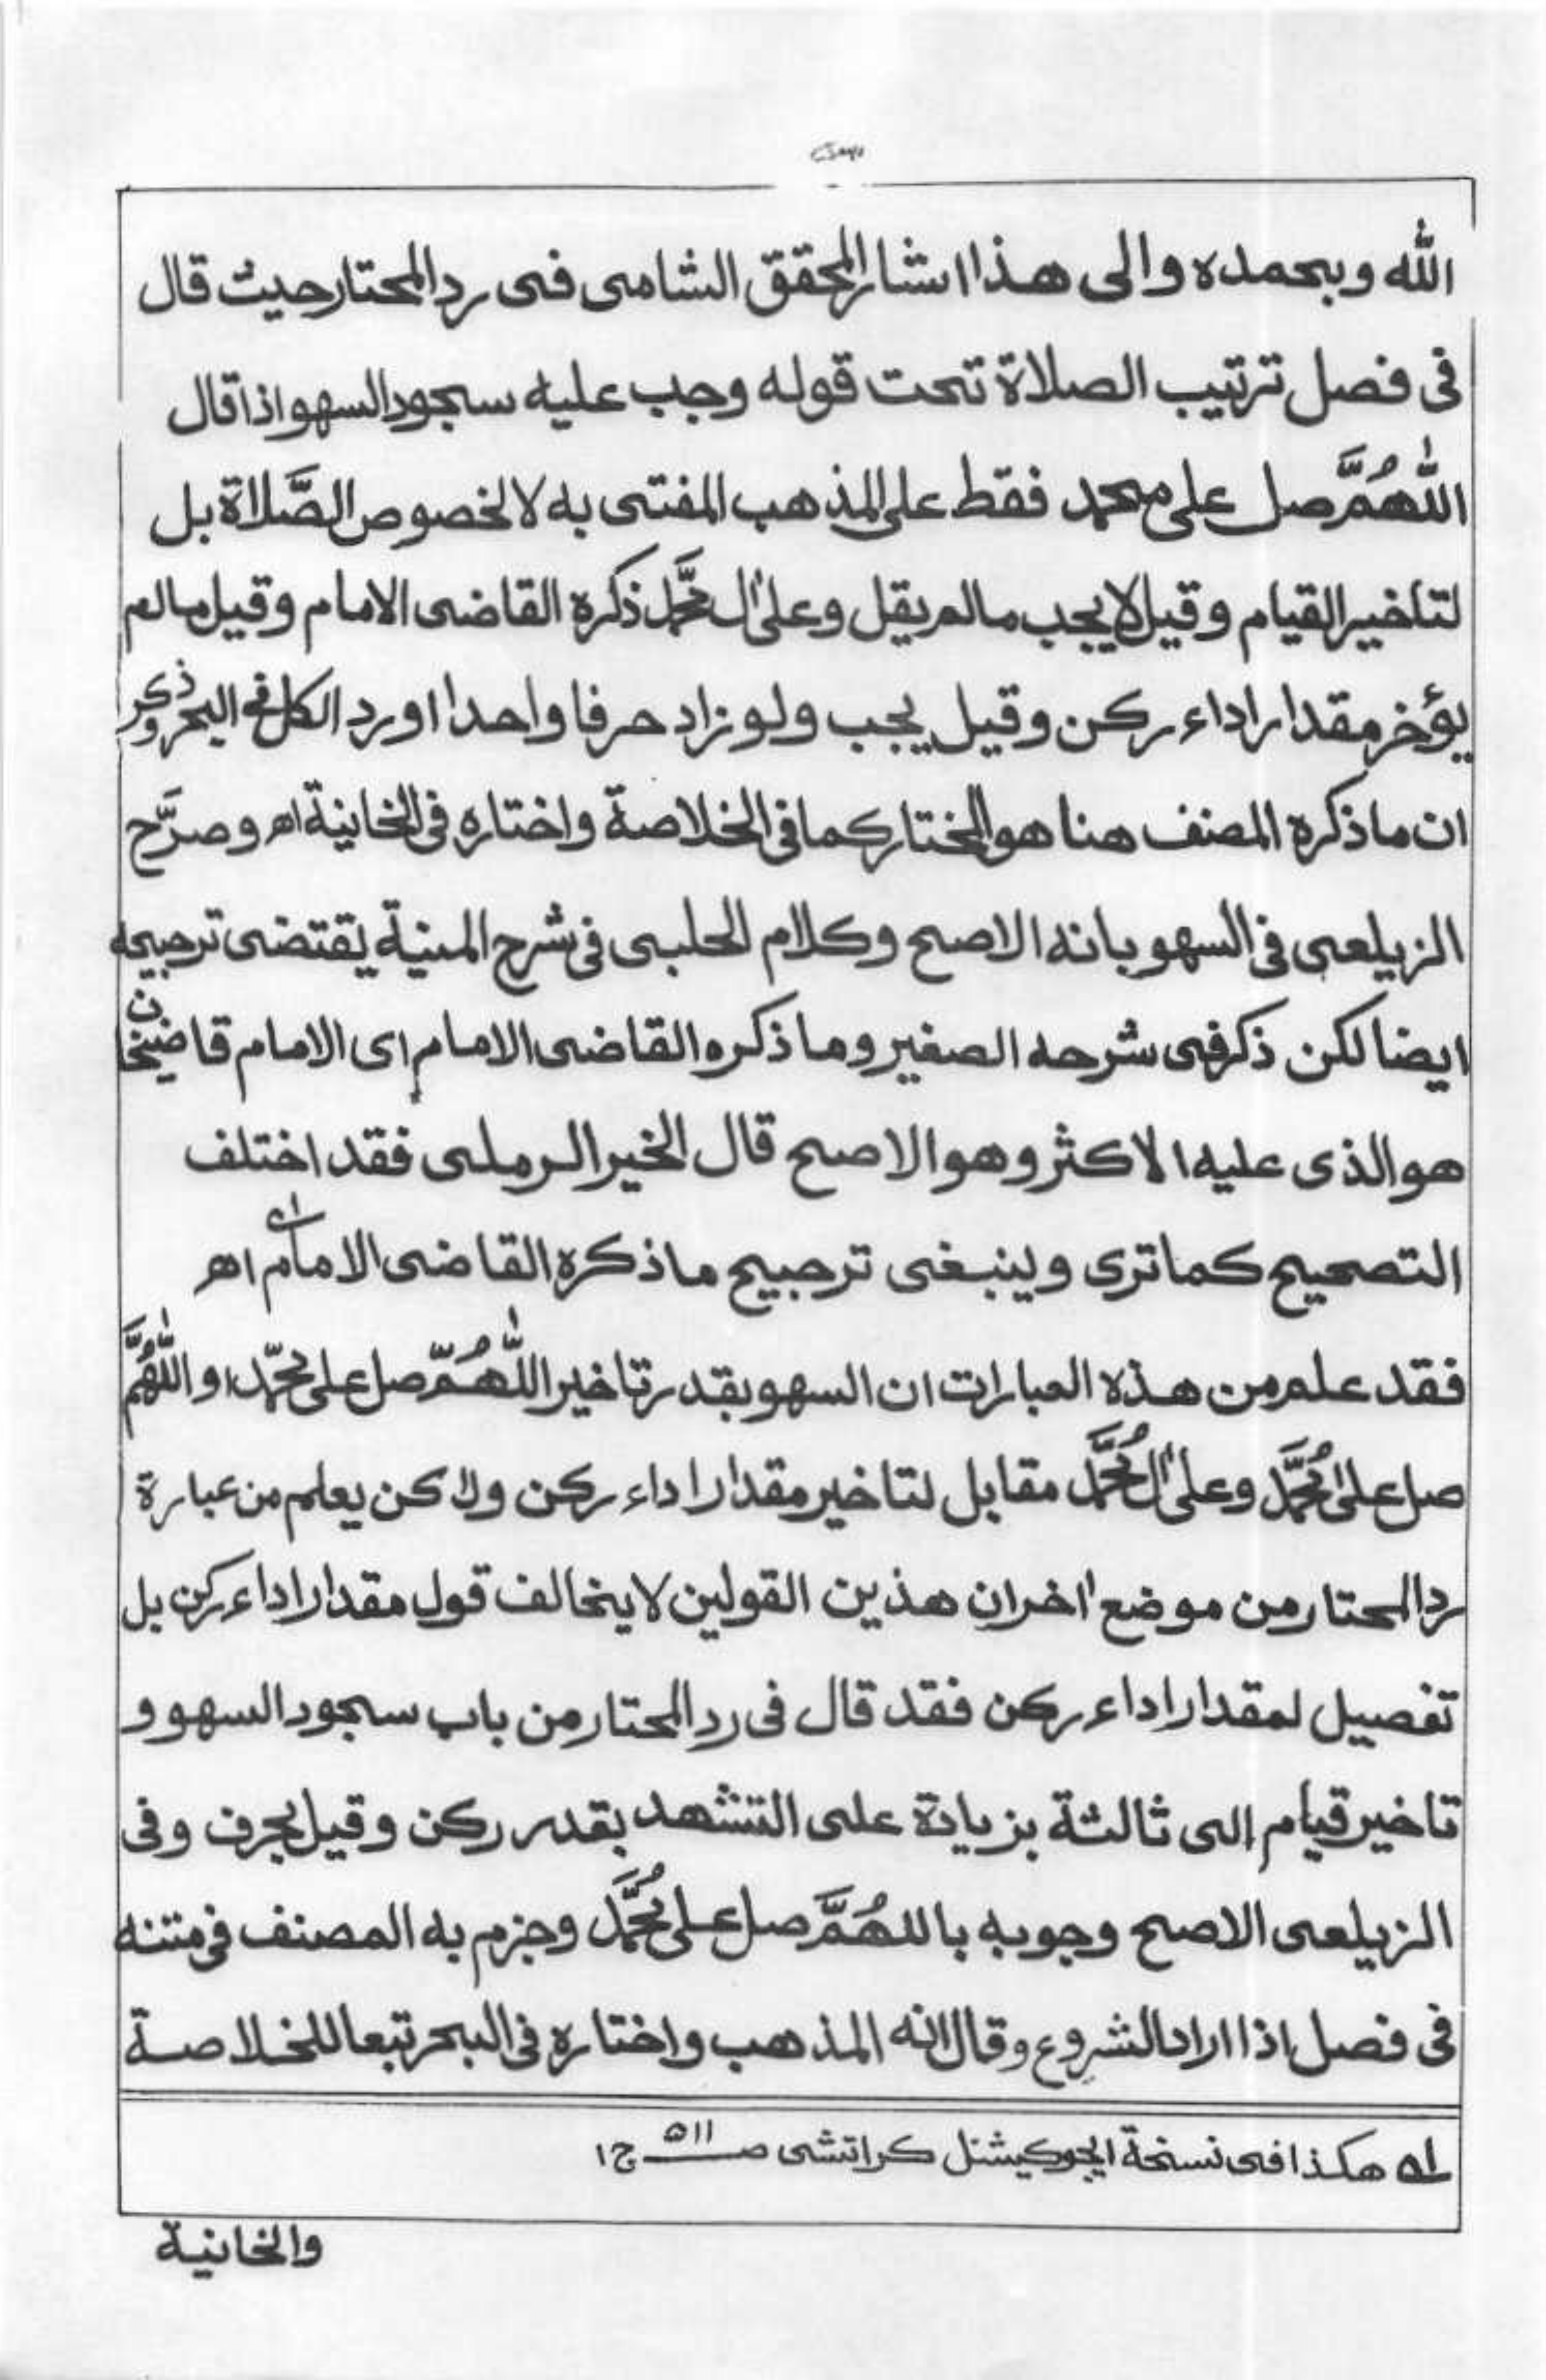 الله وبحمده والى هذا اشار المحقق الشامى فى رد المحتار حيث قال
فى فصل ترتيب الصلاة تحت قوله وجب عليه سجود السهو اذا قال
اللّٰهُمَّ صل على محمد فقط على المذهب المفتى به لا لخصوص الصَّلاة بل
لتاخير القيام وقيل لا يجب مالم يقل وعلىٰ اٰل محَمَّد ذكره القاضى الامام وقيل مالم
يؤخر مقدار اداء ركن وقيل يجب ولو زاد حرفا واحدا اورد الكل فى البحر وذكر
ان ما ذكره المصنف هنا هو المختار كما فى الخلاصة واختاره فى الخانية اھ وصرَّح
الزيلعى فى السهو بانه الاصح وكلام الحلبى فى شرح المنية يقتضى ترجيحه
ايضا لكن ذكر فى شرحه الصغير وما ذكره القاضى الامام اى الامام قاضيخان
هو الذى عليه الاكثر وهو الاصح قال الخير الرملى فقد اختلف
التصحيح كما ترى وينبغى ترجيح ما ذكره القاضى الامام ١ اھ
فقد علم من هذه العبارات ان السهو بقدر تاخير اللّٰهُمّ صل على محمّد او اللّٰهُمَّ
صل علىٰ مُحَمَّد وعلىٰ اٰل مُحَمَّد مقابل لتاخير مقدار اداء ركن ولاكن يعلم من عبارة
رد المحتار من موضع اٰخر ان هذين القولين لا يخالف قول مقدار اداء ركن بل
تفصيل لمقدار اداء ركن فقد قال فى رد المحتار من باب سجود السهو و
تاخير قيام الى ثالثة بزيادة على التشهد بقدر ركن وقيل بحرف وفى
الزيلعى الاصح وجوبه باللهُمَّ صل على مُحَمَّد وجزم به المصنف فى متنه
فى فصل اذا اراد الشروع وقال انه المذهب واختاره فى البحر تبعا للخلاصة
١ هكذا فى نسخة ايجوكيشنل كراتشى صـ ٥١١ ج١
والخانية